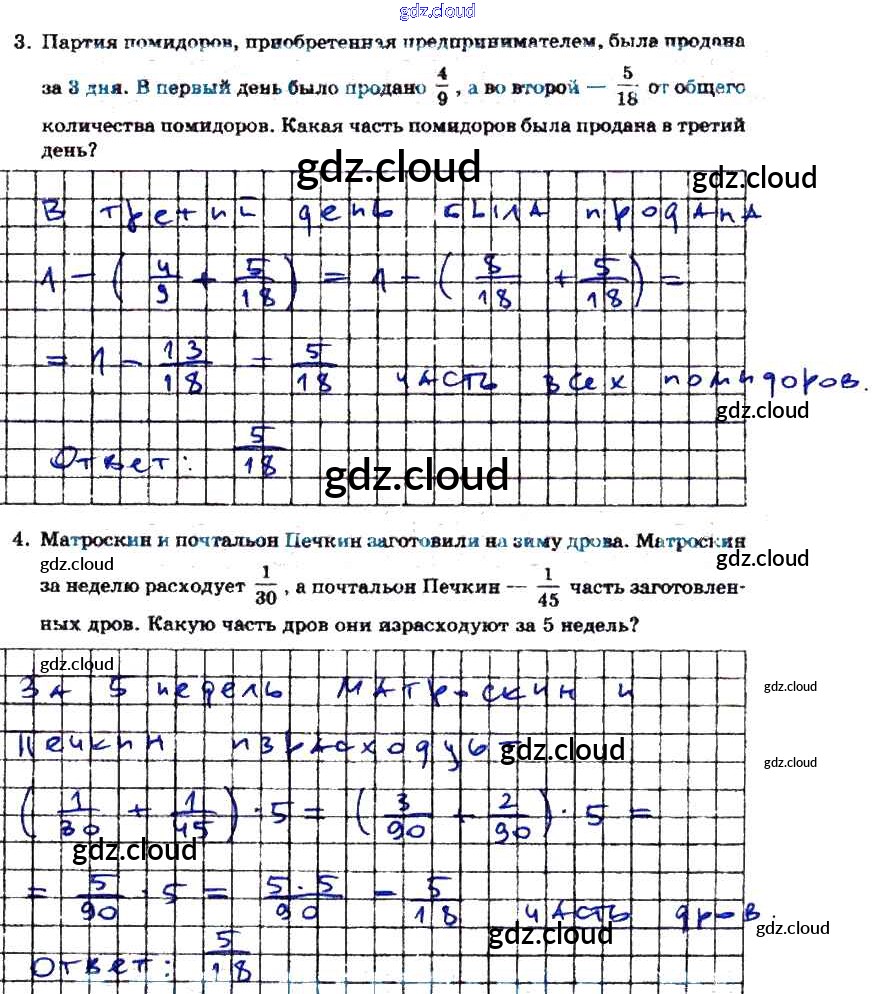 gdz.cloud
3. Партия помидоров, приобретенная предпринимателем, была продана
за 3 дня. В первый день было продано 4/9, а во второй — 5/18 от общего
количества помидоров. Какая часть помидоров была продана в третий
день?
gdz.cloud
gdz.cloud
В третий день была продана
1 - (4/9 + 5/18) = 1 - (8/18 + 5/18) =
= 1 - 13/18 = 5/18 часть всех помидоров.
gdz.cloud
Ответ: 5/18
gdz.cloud
4. Матроскин и почтальон Печкин заготовили на зиму дрова. Матроскин
gdz.cloud
gdz.cloud
за неделю расходует 1/30, а почтальон Печкин — 1/45 часть заготовлен-
ных дров. Какую часть дров они израсходуют за 5 недель?
gdz.cloud
За 5 недель Матроскин и
gdz.cloud
Печкин израсходуют
gdz.cloud
gdz.cloud
(1/30 + 1/45) · 5 = (3/90 + 2/90) · 5 =
gdz.cloud
= 5/90 · 5 = 5·5/90 = 5/18 часть дров.
gdz.cloud
gdz.cloud
Ответ: 5/18